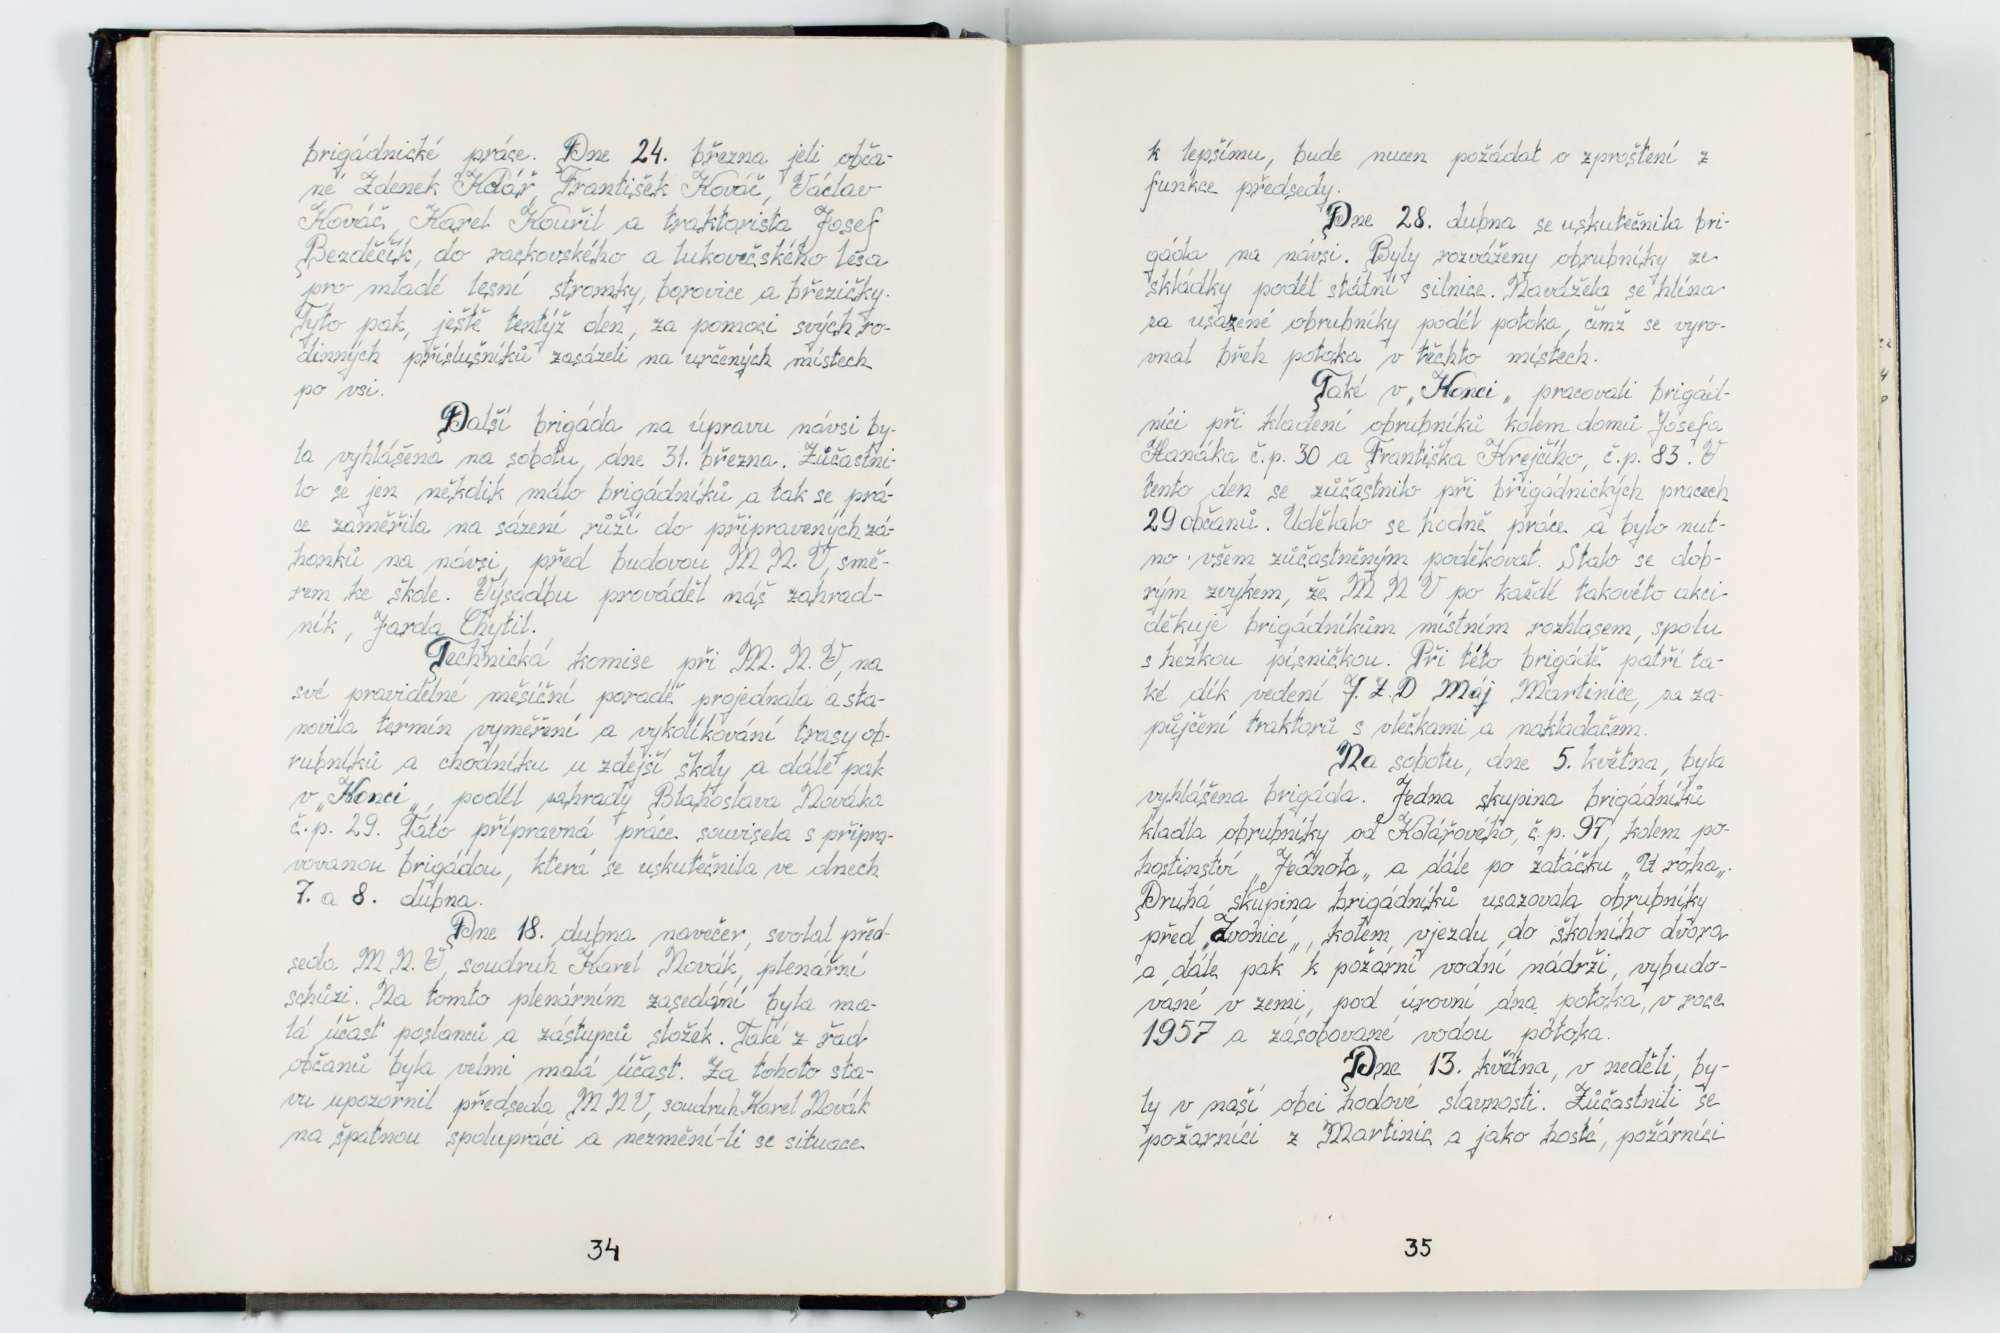 brigádnické práce. Dne 24. března jeli obča-
né Zdenek Kolář, František Kováč, Václav
Kováč, Karel Kouřil a traktorista Josef
Bezděčík, do rackovského a lukovečského lesa
pro mladé lesní stromky, borovice a březičky.
Tyto pak, ještě tentýž den, za pomoci svých ro-
dinných příslušníků zasázeli na určených místech
po vsi.
Další brigáda na úpravu návsi by-
la vyhlášena na sobotu, dne 31. března. Zůčastni-
lo se jen několik málo brigádníků a tak se prá-
ce zaměřila na sázení růží do připravených zá-
honků na návsi, před budovou M N. V, smě-
rem ke škole. Výsadbu prováděl náš zahrad-
ník, Jarda Chytil.
Technická komise při M. N. V, na
své pravidelné měsíční poradě projednala a sta-
novila termín vyměření a vykolíkování trasy ob-
rubníků a chodníku u zdejší školy a dále pak
v „Konci„, podél zahrady Blahoslava Nováka
č. p. 29. Tato přípravná práce souvisela s připra-
vovanou brigádou, která se uskutečnila ve dnech
7. a 8. dubna.
Dne 18. dubna navečer, svolal před-
seda M N. V, soudruh Karel Novák, plenární
schůzi. Na tomto plenárním zasedání byla ma-
lá účast poslanců a zástupců složek. Také z řad
občanů byla velmi malá účast. Za tohoto sta-
vu upozornil předseda M N V, soudruh Karel Novák
na špatnou spolupráci a nezmění-li se situace
34
k lepšímu, bude nucen požádat o zproštení z
funkce předsedy.
Dne 28. dubna se uskutečnila bri-
gáda na návsi. Byly rozváženy obrubníky ze
skládky podél státní silnice. Navážela se hlína
za usazené obrubníky podél potoka, čímž se vyro-
vnal břeh potoka v těchto místech.
Také v „Konci„ pracovali brigád-
níci při kladení obrubníků kolem domů Josefa
Hanáka č. p. 30 a Františka Krejčího, č. p. 83. V
tento den se zůčastnilo při brigádnických pracech
29 občanů. Udělalo se hodně práce a bylo nut-
no všem zůčastněným poděkovat. Stalo se dob-
rým zvykem, že M N V po každé takovéto akci
děkuje brigádníkům místním rozhlasem, spolu
s hezkou písničkou. Při této brigádě patří ta-
ké dík vedení J. Z. D Máj Martinice, za za-
půjčení traktorů s vlečkami a nakladačem.
Na sobotu, dne 5. května, byla
vyhlášena brigáda. Jedna skupina brigádníků
kladla obrubníky od Kolářového, č. p. 97, kolem po-
hostinství „Jednota„ a dále po zatáčku „U roha„.
Druhá skupina brigádníků usazovala obrubníky
před „Zvonicí„, kolem vjezdu do školního dvora
a dále pak k požární vodní nádrži, vybudo-
vané v zemi, pod úrovní dna potoka, v roce
1957 a zásobované vodou potoka.
Dne 13. května, v neděli, by-
ly v naší obci hodové slavnosti. Zůčastnili se
požarníci z Martinic a jako hosté, požárníci
35